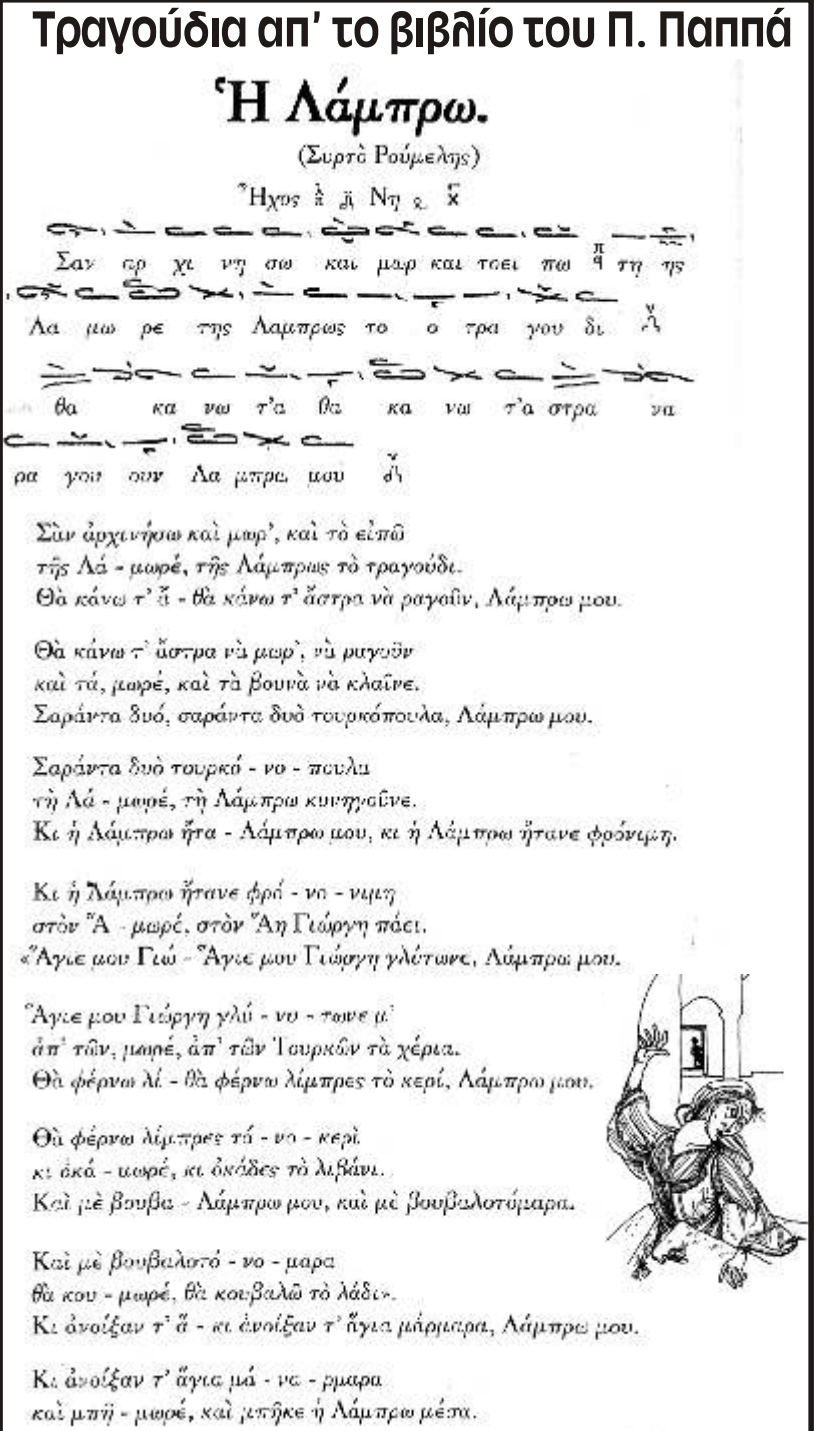 Τραγούδια απ' το βιβλίο του Π. Παππά
Ἡ Λάμπρω.
(Συρτὸ Ρούμελης)
Ἦχος Νη
Σαν αρ χι νη σω και μωρ και τοει πω τη ης
Λα μω ρε της Λαμπρως το ο τρα γου δι
θα κα νω τ'α θα κα νω τ'α στρα να
ρα γου ουν Λα μπρω μου
Σὰν ἀρχινήσω καὶ μωρ', καὶ τὸ εἰπῶ
τῆς Λά - μωρέ, τῆς Λάμπρως τὸ τραγούδι.
Θὰ κάνω τ' ἄ - θὰ κάνω τ' ἄστρα νὰ ραγοῦν, Λάμπρω μου.
Θὰ κάνω τ' ἄστρα νὰ μωρ', νὰ ραγοῦν
καὶ τά, μωρέ, καὶ τὰ βουνὰ νὰ κλαῖνε.
Σαράντα δυό, σαράντα δυὸ τουρκόπουλα, Λάμπρω μου.
Σαράντα δυὸ τουρκό - νο - πουλα
τὴ Λά - μωρέ, τὴ Λάμπρω κυνηγοῦνε.
Κι ἡ Λάμπρω ἤτα - Λάμπρω μου, κι ἡ Λάμπρω ἤτανε φρόνιμη.
Κι ἡ Λάμπρω ἤτανε φρό - νο - νιμη
στὸν Ἅ - μωρέ, στὸν Ἅη Γιώργη πάει.
«Ἅγιε μου Γιώ - Ἅγιε μου Γιώργη γλύτωνε, Λάμπρω μου.
Ἅγιε μου Γιώργη γλύ - νυ - τωνε μ'
ἀπ' τῶν, μωρέ, ἀπ' τῶν Τουρκῶν τὰ χέρια.
Θὰ φέρνω λί - θὰ φέρνω λίμπρες τὸ κερί, Λάμπρω μου.
Θὰ φέρνω λίμπρες τό - νο - κερὶ
κι ὀκά - μωρέ, κι ὀκάδες τὸ λιβάνι.
Καὶ μὲ βουβα - Λάμπρω μου, καὶ μὲ βουβαλοτόμαρα.
Καὶ μὲ βουβαλοτό - νο - μαρα
θὰ κου - μωρέ, θὰ κουβαλῶ τὸ λάδι».
Κι ἀνοίξαν τ' ἅ - κι ἀνοίξαν τ' ἅγια μάρμαρα, Λάμπρω μου.
Κι ἀνοίξαν τ' ἅγια μά - να - ρμαρα
καὶ μπῆ - μωρέ, καὶ μπῆκε ἡ Λάμπρω μέσα.